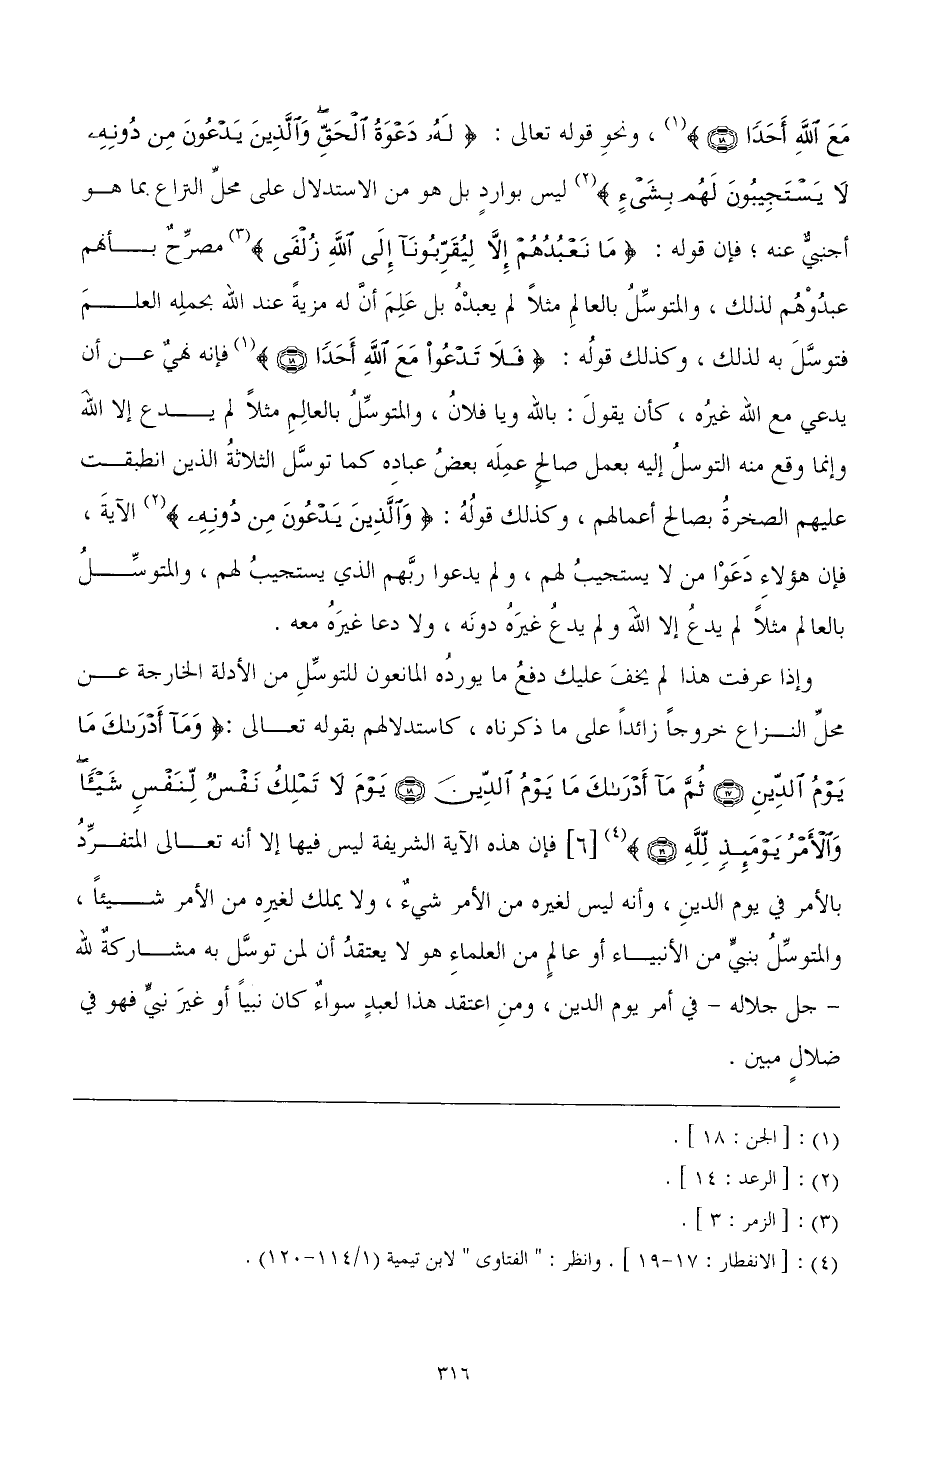 مَعَ ٱللَّهِ أَحَدًا ۝١٨ ﴾(١) ، ونحوِ قوله تعالى : ﴿ لَهُۥ دَعْوَةُ ٱلْحَقِّ ۖ وَٱلَّذِينَ يَدْعُونَ مِن دُونِهِۦ
لَا يَسْتَجِيبُونَ لَهُم بِشَىْءٍ ﴾(٢) ليس بواردٍ بل هو من الاستدلال على محلِّ النزاع بما هـو
أجنبيٌّ عنه ؛ فإن قوله : ﴿ مَا نَعْبُدُهُمْ إِلَّا لِيُقَرِّبُونَآ إِلَى ٱللَّهِ زُلْفَىٰٓ ﴾(٣) مصرِّحٌ بـأنهم
عبدُوْهُم لذلك ، والمتوسِّلُ بالعالمِ مثلاً لم يعبدْهُ بل عَلِمَ أنَّ له مزيةً عند الله بحملِه العلـمَ
فتوسَّلَ به لذلك ، وكذلك قولُه : ﴿ فَلَا تَدْعُوا۟ مَعَ ٱللَّهِ أَحَدًا ۝١٨ ﴾(١) فإنه نهيٌ عـن أن
يدعي مع الله غيرُه ، كأن يقولَ : بالله ويا فلانُ ، والمتوسِّلُ بالعالِمِ مثلاً لم يـدع إلا اللهَ
وإنما وقع منه التوسلُ إليه بعمل صالحٍ عمِلَه بعضُ عبادِه كما توسَّل الثلاثةُ الذين انطبقـت
عليهم الصخرةُ بصالح أعمالهم ، وكذلك قولُهُ : ﴿ وَٱلَّذِينَ يَدْعُونَ مِن دُونِهِۦ ﴾(٢) الآيةَ ،
فإن هؤلاءِ دَعَوْا من لا يستجيبُ لهم ، ولم يدعوا ربَّهم الذي يستجيبُ لهم ، والمتوسِّـلُ
بالعالمِ مثلاً لم يدعُ إلا اللهَ ولم يدعُ غيرَهُ دونَه ، ولا دعا غيرَهُ معه .
وإذا عرفت هذا لم يخفَ عليك دفعُ ما يوردُه المانعون للتوسِّلِ من الأدلة الخارجة عـن
محلِّ النـزاع خروجاً زائداً على ما ذكرناه ، كاستدلالهم بقوله تعـالى :﴿ وَمَآ أَدْرَىٰكَ مَا
يَوْمُ ٱلدِّينِ ۝١٧ ثُمَّ مَآ أَدْرَىٰكَ مَا يَوْمُ ٱلدِّينِ ۝١٨ يَوْمَ لَا تَمْلِكُ نَفْسٌ لِّنَفْسٍ شَيْـًٔا ۖ
وَٱلْأَمْرُ يَوْمَئِذٍ لِّلَّهِ ۝١٩ ﴾(٤) [٦] فإن هذه الآية الشريفة ليس فيها إلا أنه تعـالى المتفـرِّدُ
بالأمر في يوم الدينِ ، وأنه ليس لغيره من الأمر شيءٌ ، ولا يملك لغيرِه من الأمر شـيئاً ،
والمتوسِّلُ بنبيٍّ من الأنبيـاء أو عالمٍ من العلماءِ هو لا يعتقدُ أن لمن توسَّل به مشـاركةٌ لله
- جل جلاله - في أمر يوم الدين ، ومنِ اعتقد هذا لعبدٍ سواءٌ كان نبياً أو غيرَ نبيٍّ فهو في
ضلالٍ مبين .
(١) : [ الجن : ١٨ ] .
(٢) : [ الرعد : ١٤ ] .
(٣) : [ الزمر : ٣ ] .
(٤) : [ الانفطار : ١٧-١٩ ] . وانظر : " الفتاوى " لابن تيمية (١/١١٤-١٢٠) .
٣١٦